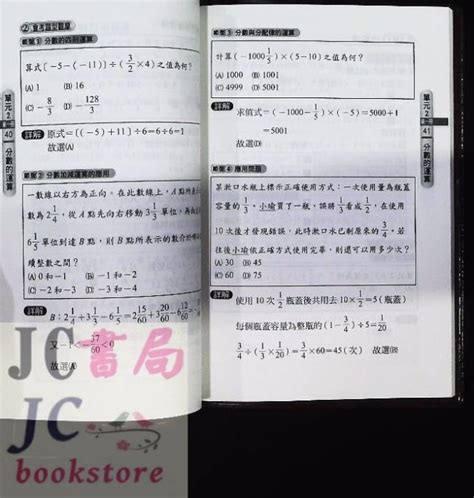 ② 會考類型觀摩
範例① 分數的四則運算
算式〔-5-(-11)〕÷(3/2×4)之值為何?
(A) 1 (B) 16
(C) -8/3 (D) -128/3
詳解 原式=〔(-5)+11〕÷6=6÷6=1
故選(A)
範例② 分數加減運算的應用
一數線以右方為正向。在此數線上,A點所表示的
數為2 1/4,從A點先向右移動3 1/3單位,再
6 1/5單位到達B點,則B點所表示的數介於哪
續整數之間?
(A) 0和-1 (B) -1和-2
(C) -2和-3 (D) -3和-4
詳解 B:2 1/4+3 1/3-6 1/5=2 15/60+3 20/60-6
又-1<-37/60<0
故選(A)
單元2
40
分數的運算
範例③ 分數與分配律的運算
計算(-1000 1/5)×(5-10)之值為何?
(A) 1000 (B) 1001
(C) 4999 (D) 5001
詳解 求值式=(-1000-1/5)×(-5)=5000+1
=5001
故選(D)
範例④ 應用問題
某漱口水瓶上標示正確使用方式:一次使用量為瓶蓋
容量的1/3,小瑜買了一瓶,誤將1/3看成1/2,在使用
10次後才發現錯誤,此時漱口水已剩原來的3/4,若
往後小瑜依正確方式使用完畢,則還可以用多少次?
(A) 30 (B) 45
(C) 60 (D) 75
詳解 使用10次1/2瓶蓋後共用去10×1/2=5(瓶蓋)
每個瓶蓋容量為整瓶的(1-3/4)÷5=1/20
3/4÷(1/3×1/20)=3/4×60=45(次) 故選(B)
單元2
41
分數的運算
JC書局
JC
bookstore